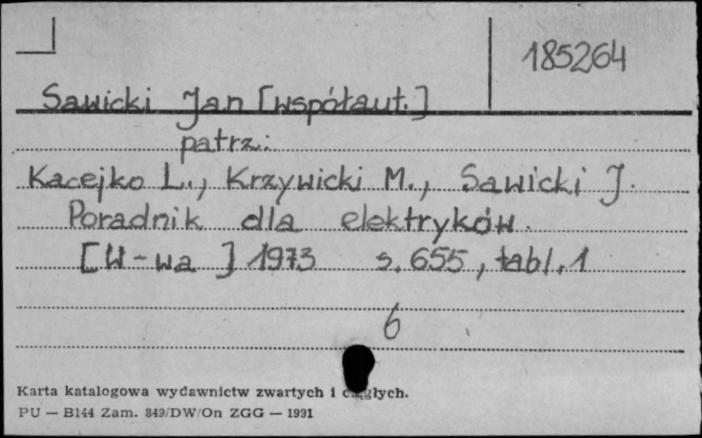 185264
Sawicki Jan [współaut.]
patrz:
Kacejko L., Krzywicki M., Sawicki J.
Poradnik dla elektryków.
[W-wa] 1973 s. 655, tabl. 1
6
Karta katalogowa wydawnictw zwartych i ciągłych.
PU — B144 Zam. 849/DW/On ZGG — 1991